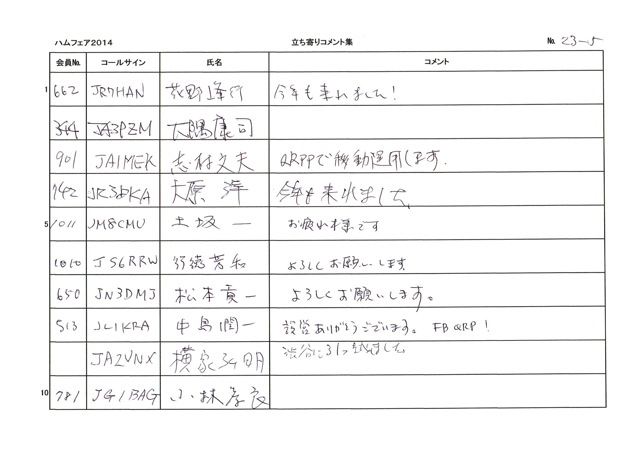 ハムフェア2014 立ち寄りコメント集 No. 23-5
会員No. コールサイン 氏名 コメント
1 662 JR7HAN 荻野峰行 今年も来れました!
344 JA3PZM 大隅康司
901 JA1MEK 志村文夫 QRPPで移動運用してます.
742 JR3 KA 大原 洋 今年も来れました
5 1011 JM8CMU 土坂 一 お疲れ様です
1010 JS6RRW 行徳芳和 よろしくお願いします
650 JN3DMJ 松本貢一 よろしくお願いします。
513 JL1KRA 中島潤一 設営ありがとうございます。 FB QRP!
JA2VNX 横家 明 渋谷に引っ越しました
10 781 JG1BAG 小林孝衣